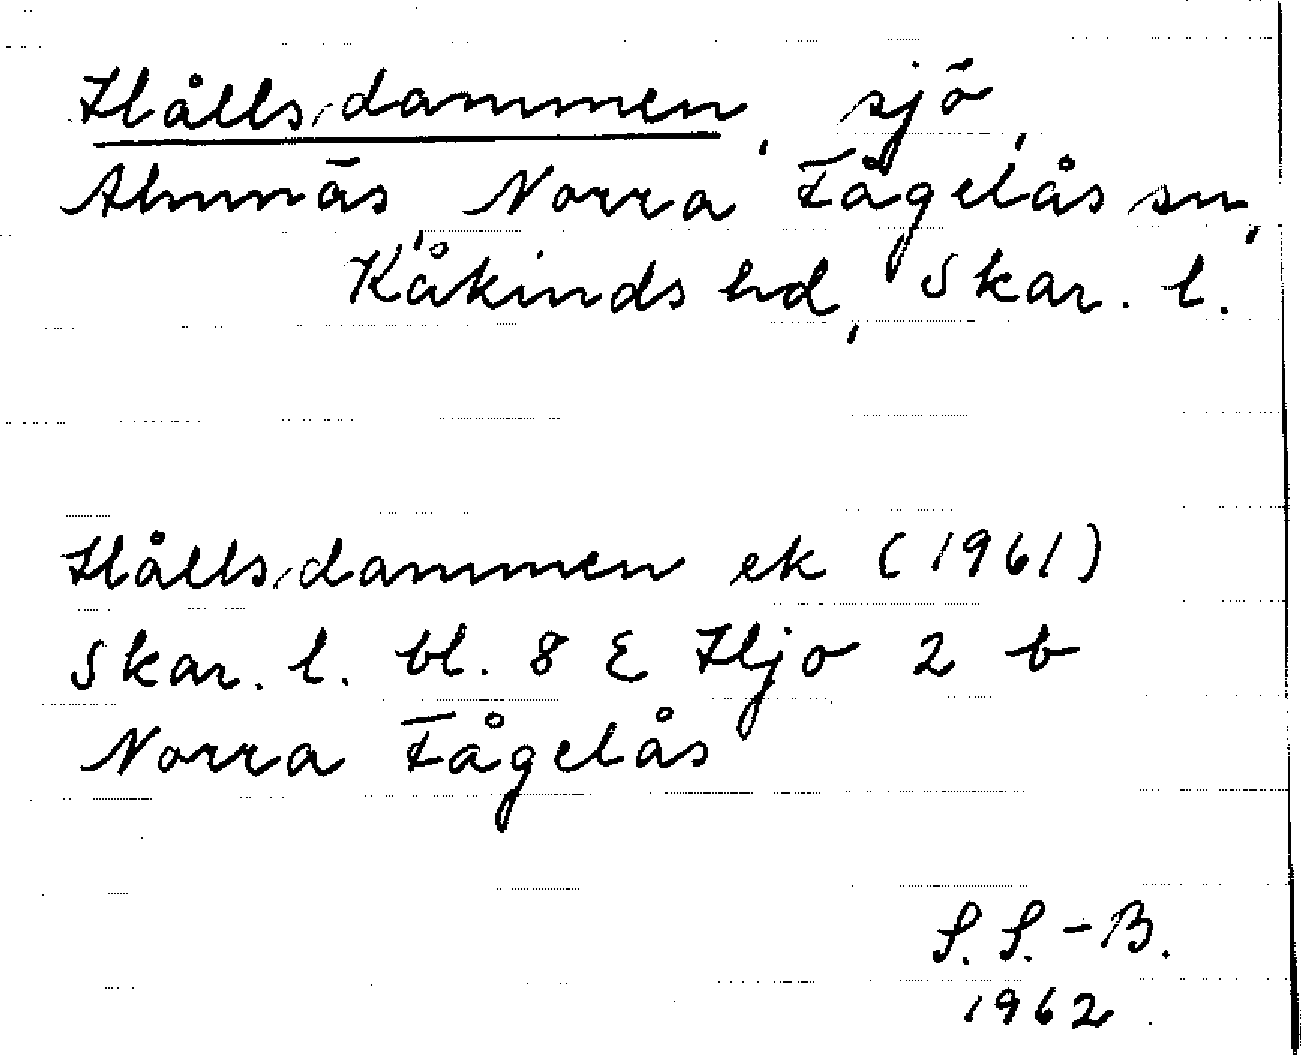 Hållsdammen, sjö,
Almnäs, Norra Fågelås sn,
Kåkinds hd, Skar. l.
Hållsdammen ek (1961)
Skar. l. bl. 8 E Hjo 2 b
Norra Fågelås
S. S.-B.
1962